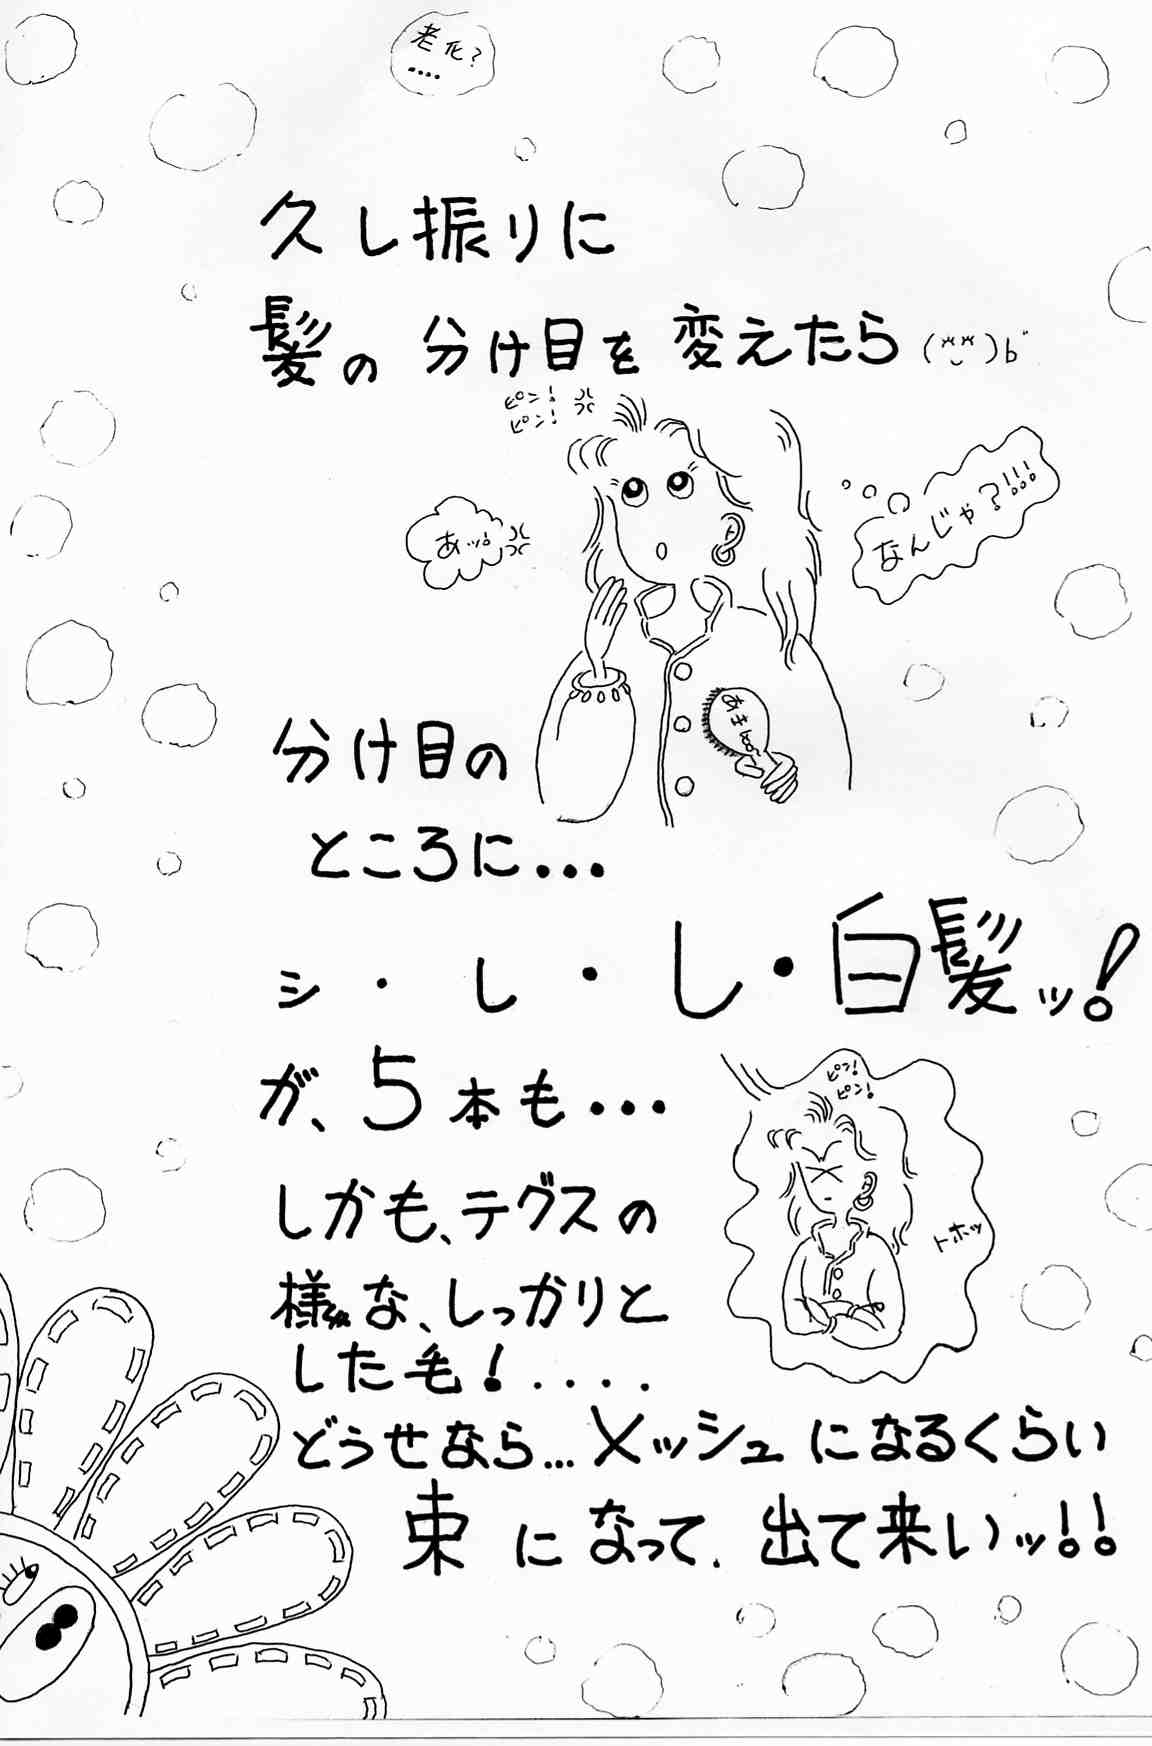 老化?
....
久し振りに
髪の分け目を変えたら
ピン!
ピン!
あッ!
なんじゃ?!!!
分け目の
ところに...
シ・し・し・白髪ッ!
が、5本も...
ピン!
ピン!
トホホッ
しかも、テグスの
様な、しっかりと
した毛!....
どうせなら...メッシュになるくらい
束になって、出て来いッ!!